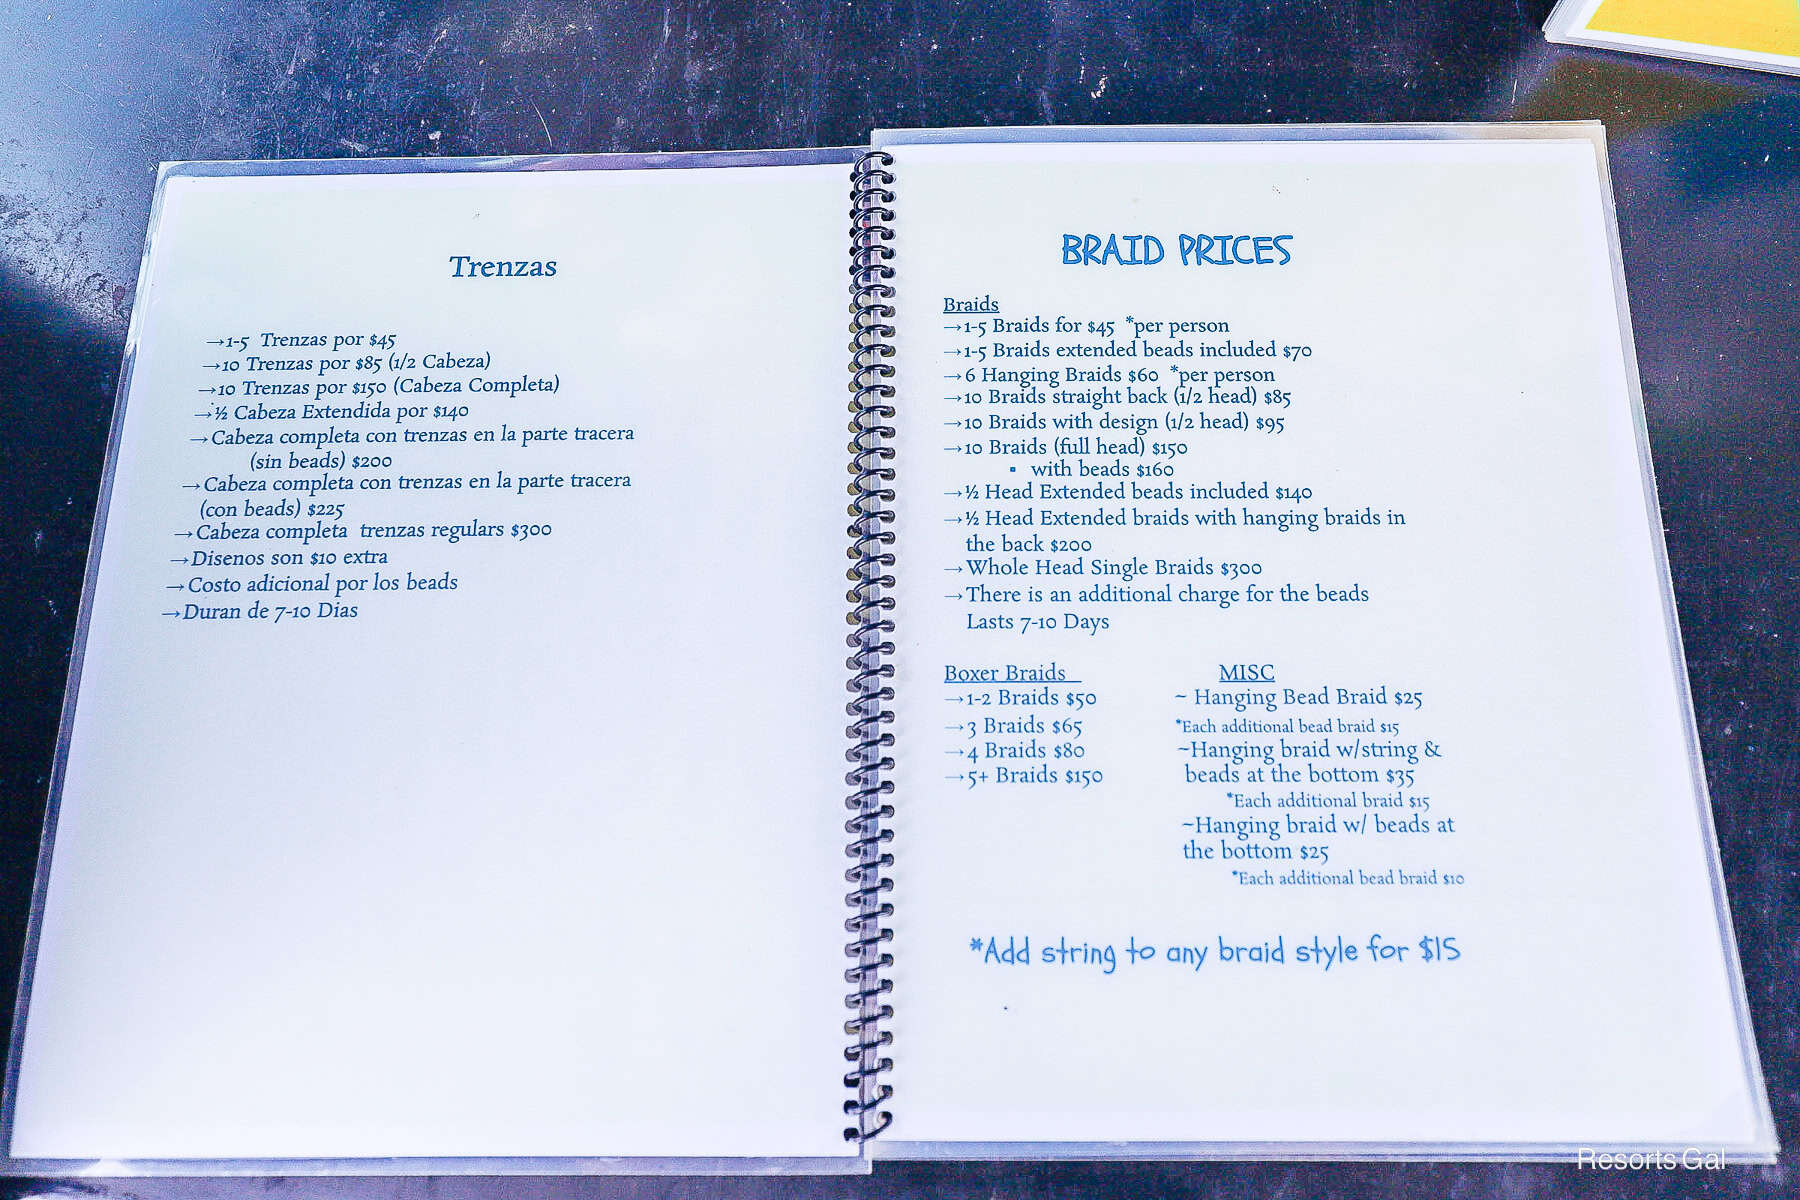 Trenzas
→1-5 Trenzas por $45
→10 Trenzas por $85 (1/2 Cabeza)
→10 Trenzas por $150 (Cabeza Completa)
→½ Cabeza Extendida por $140
→Cabeza completa con trenzas en la parte tracera
(sin beads) $200
→Cabeza completa con trenzas en la parte tracera
(con beads) $225
→Cabeza completa trenzas regulars $300
→Disenos son $10 extra
→Costo adicional por los beads
→Duran de 7-10 Dias
BRAID PRICES
Braids
→1-5 Braids for $45 *per person
→1-5 Braids extended beads included $70
→6 Hanging Braids $60 *per person
→10 Braids straight back (1/2 head) $85
→10 Braids with design (1/2 head) $95
→10 Braids (full head) $150
▪ with beads $160
→½ Head Extended beads included $140
→½ Head Extended braids with hanging braids in
the back $200
→Whole Head Single Braids $300
→There is an additional charge for the beads
Lasts 7-10 Days
Boxer Braids
→1-2 Braids $50
→3 Braids $65
→4 Braids $80
→5+ Braids $150
MISC
~ Hanging Bead Braid $25
*Each additional bead braid $15
~Hanging braid w/string &
beads at the bottom $35
*Each additional braid $15
~Hanging braid w/ beads at
the bottom $25
*Each additional bead braid $10
*Add string to any braid style for $15
Resorts Gal